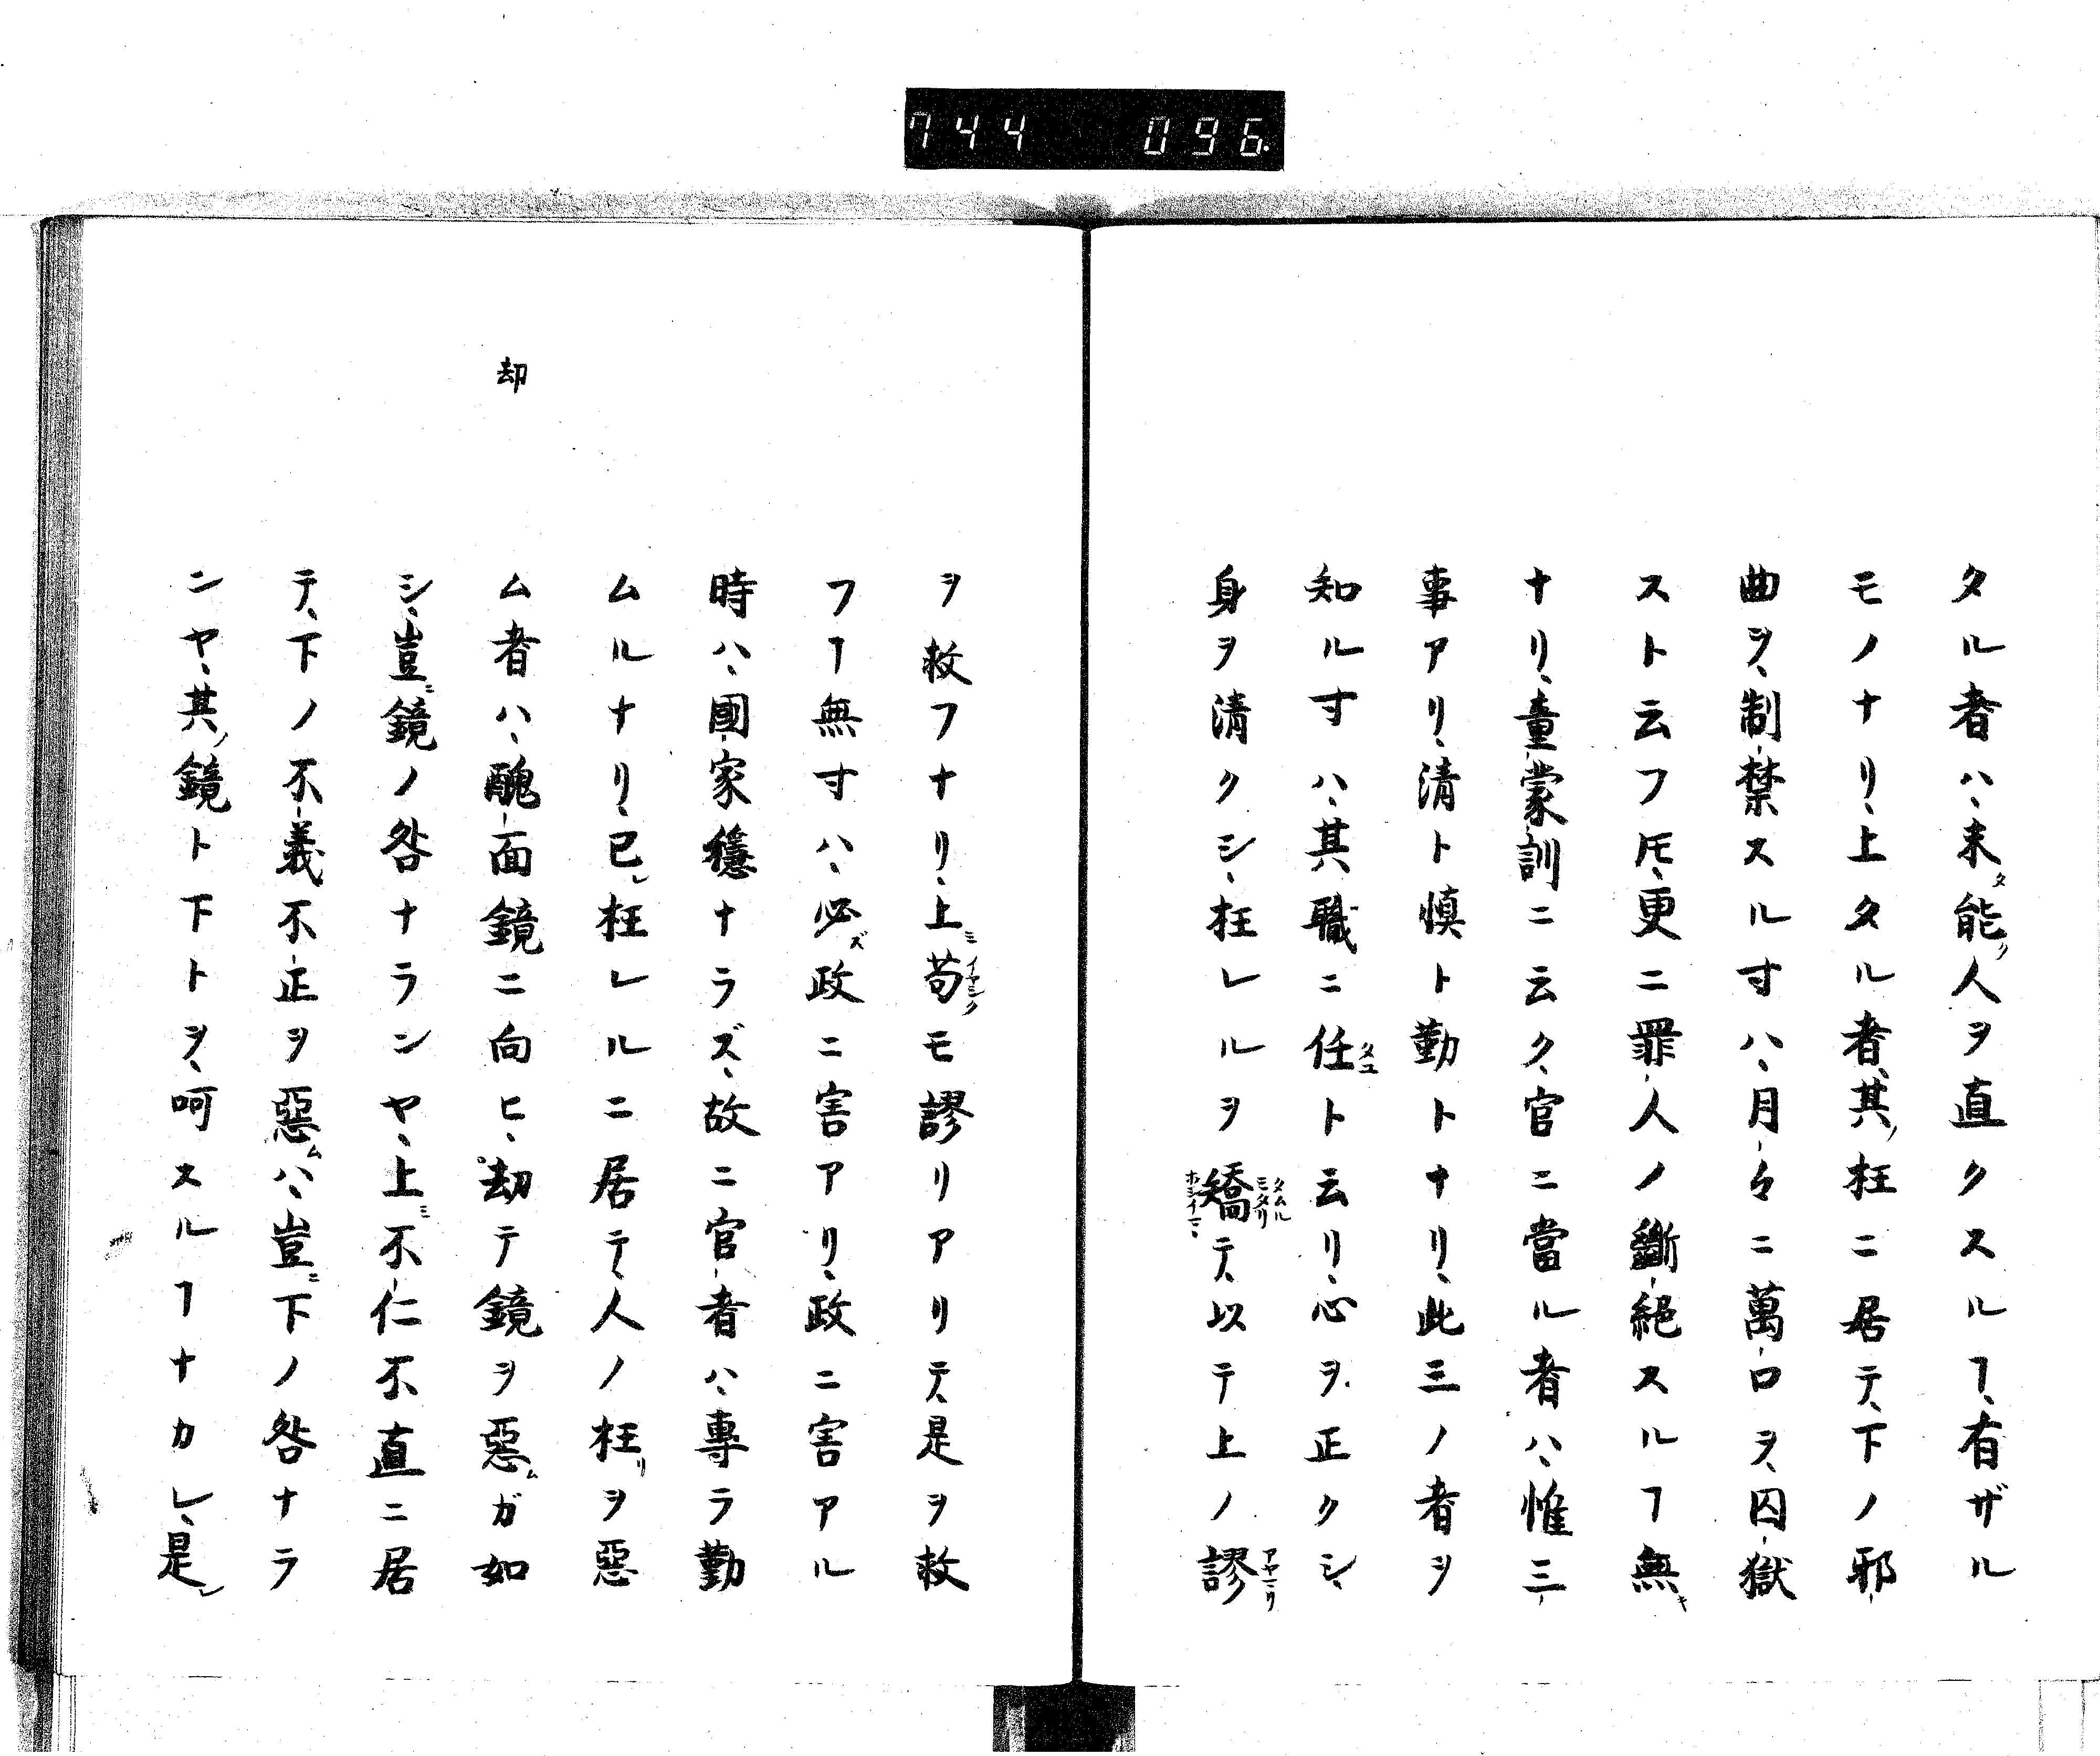 744 096.
タル者ハ、未タ能ノ人ヲ直クスルヿ、有ザル
モノナリ、上タル者、其ノ枉ニ居テ、下ノ邪
曲ヲ、制禁スル寸ハ、月々ニ萬口ヲ、囚獄
スト云フ𪜈、更ニ罪人ノ斷絕スルヿ無キ
ナリ、童蒙訓ニ云ク、官ニ當ル者ハ、惟三
事アリ、清ト慎ト勤トナリ、此三ノ者ヲ
知ル寸ハ、其職ニ任タユト云リ、心ヲ正クシ、
身ヲ清クシ、枉レルヲ矯テ、以テ上ノ謬アヤマリ
ヲ救フナリ、上ミ苟イヤシクモ謬リアリテ、是ヲ救
フヿ無寸ハ、必ズ政ニ害アリ、政ニ害アル
時ハ、國家穩ナラズ、故ニ官者ハ、專ラ勤
ムルナリ、已レ枉レルニ居テ、人ノ枉リヲ惡
ム者ハ、醜面鏡ニ向ヒ、劫テ鏡ヲ惡ムガ如
却
シ、豈ニ鏡ノ咎ナランヤ、上ミ不仁不直ニ居
テ、下ノ不義不正ヲ惡ムハ、豈ニ下ノ咎ナラ
ンヤ、其ノ鏡ト下トヲ、呵スルヿナカレ、是レ